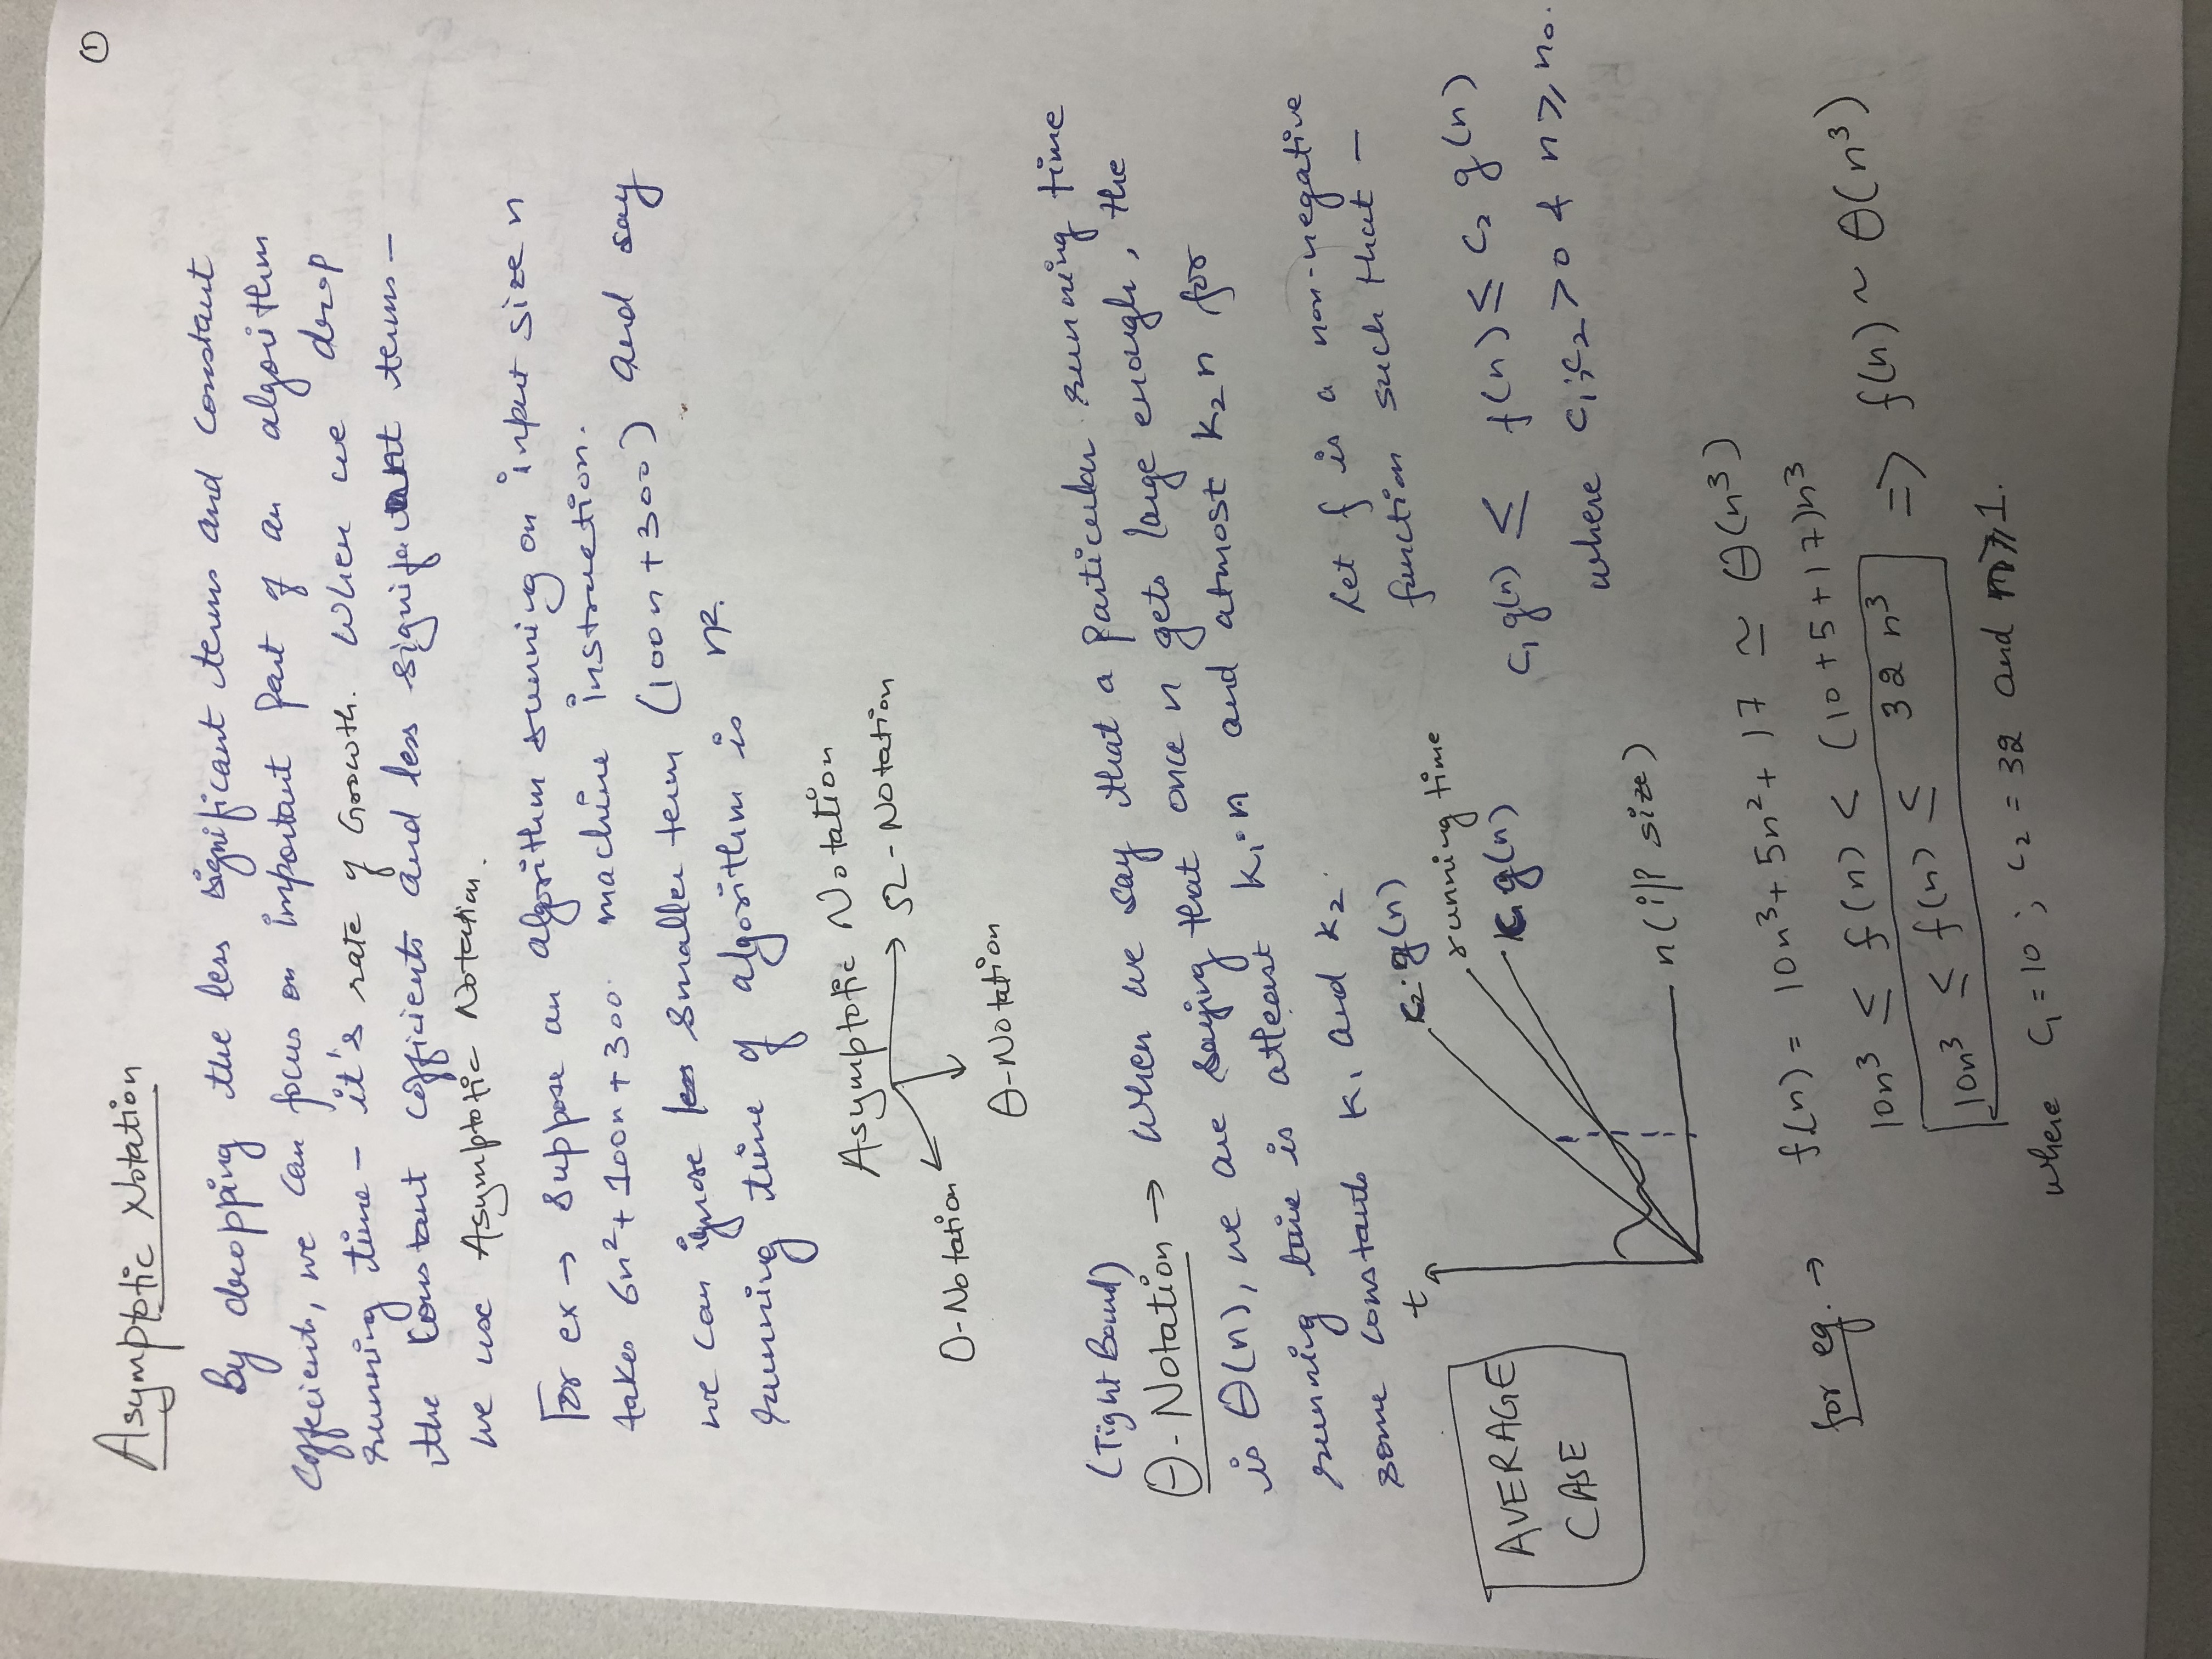 ①
Asymptotic Notation
By dropping the less significant terms and constant
cofficient, we can focus on important part of an algorithm
running time - it's rate of Growth. When we drop
the constant cofficients and less significant terms -
we use Asymptotic Notation.
For ex → Suppose an algorithm running on input size n
takes 6n² + 100n + 300 machine instruction.
we can ignore smaller term (100n + 300) and say
running time of algorithm is n².
Asymptotic Notation
Ω - Notation
O-Notation
Θ-Notation
(Tight Bound)
Θ-Notation → When we say that a particular running time
is Θ(n), we are saying that once n gets large enough, the
running time is atleast k₁·n and atmost k₂n for
some constants k₁ and k₂.
Let f is a non-negative
function such that -
t
c₂·g(n)
running time
c₁g(n)
AVERAGE
CASE
c₁g(n) ≤ f(n) ≤ c₂ g(n)
where c₁;c₂ > 0 & n ≥ n₀.
n (i/p size)
for eg. → f(n) = 10n³ + 5n² + 17 ≃ Θ(n³)
10n³ ≤ f(n) < (10 + 5 + 17)n³
10n³ ≤ f(n) ≤ 32 n³ => f(n) ~ Θ(n³)
where c₁ = 10 ; c₂ = 32 and n ≥ 1.